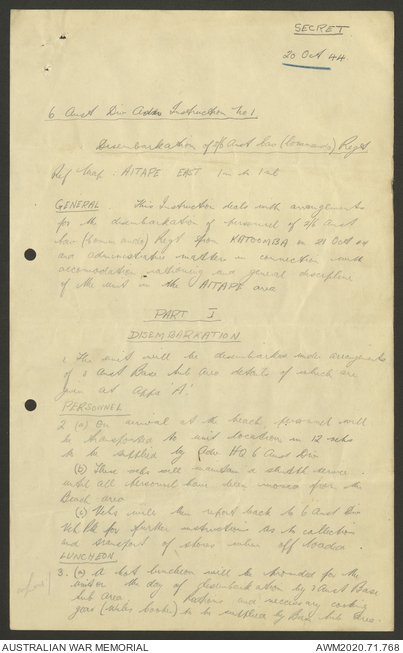 SECRET
20 Oct 44
6 Aust Div Adm Instruction No 1.
Disembarkation of 2/6 Aust Cav (Commando) Regt
Ref Map. AITAPE EAST 1in to 1ml
GENERAL This Instruction deals with arrangements
for the disembarkation of personnel of 2/6 Aust
Cav (Commando) Regt from KATOOMBA on 21 Oct 44
and administrative matters in connection with
accomodation rationing and general discipline
of the unit in the AITAPE area
PART I
DISEMBARKATION
1. The unit will be disembarked under arrangements
of 3 Aust Base Sub Area details of which are
given at Appx 'A'.
PERSONNEL
2 (a) On arrival at the beach personnel will
be transported to unit location in 12 vehs
to be supplied by HQ 6 Aust Div
(b) These vehs will maintain a shuttle service
until all personnel have been moved from the
Beach area
(c) Vehs will then report back to 6 Aust Div
Veh Pk for further instructions as to collection
and transport of stores when off loaded.
LUNCHEON
3. (a) A hot luncheon will be provided for the
unit on the day of disembarkation by 3 Aust Base
Sub area. Rations and necessary cooking
gear to be supplied by Base Sub Area.
AUSTRALIAN WAR MEMORIAL
AWM2020.71.768